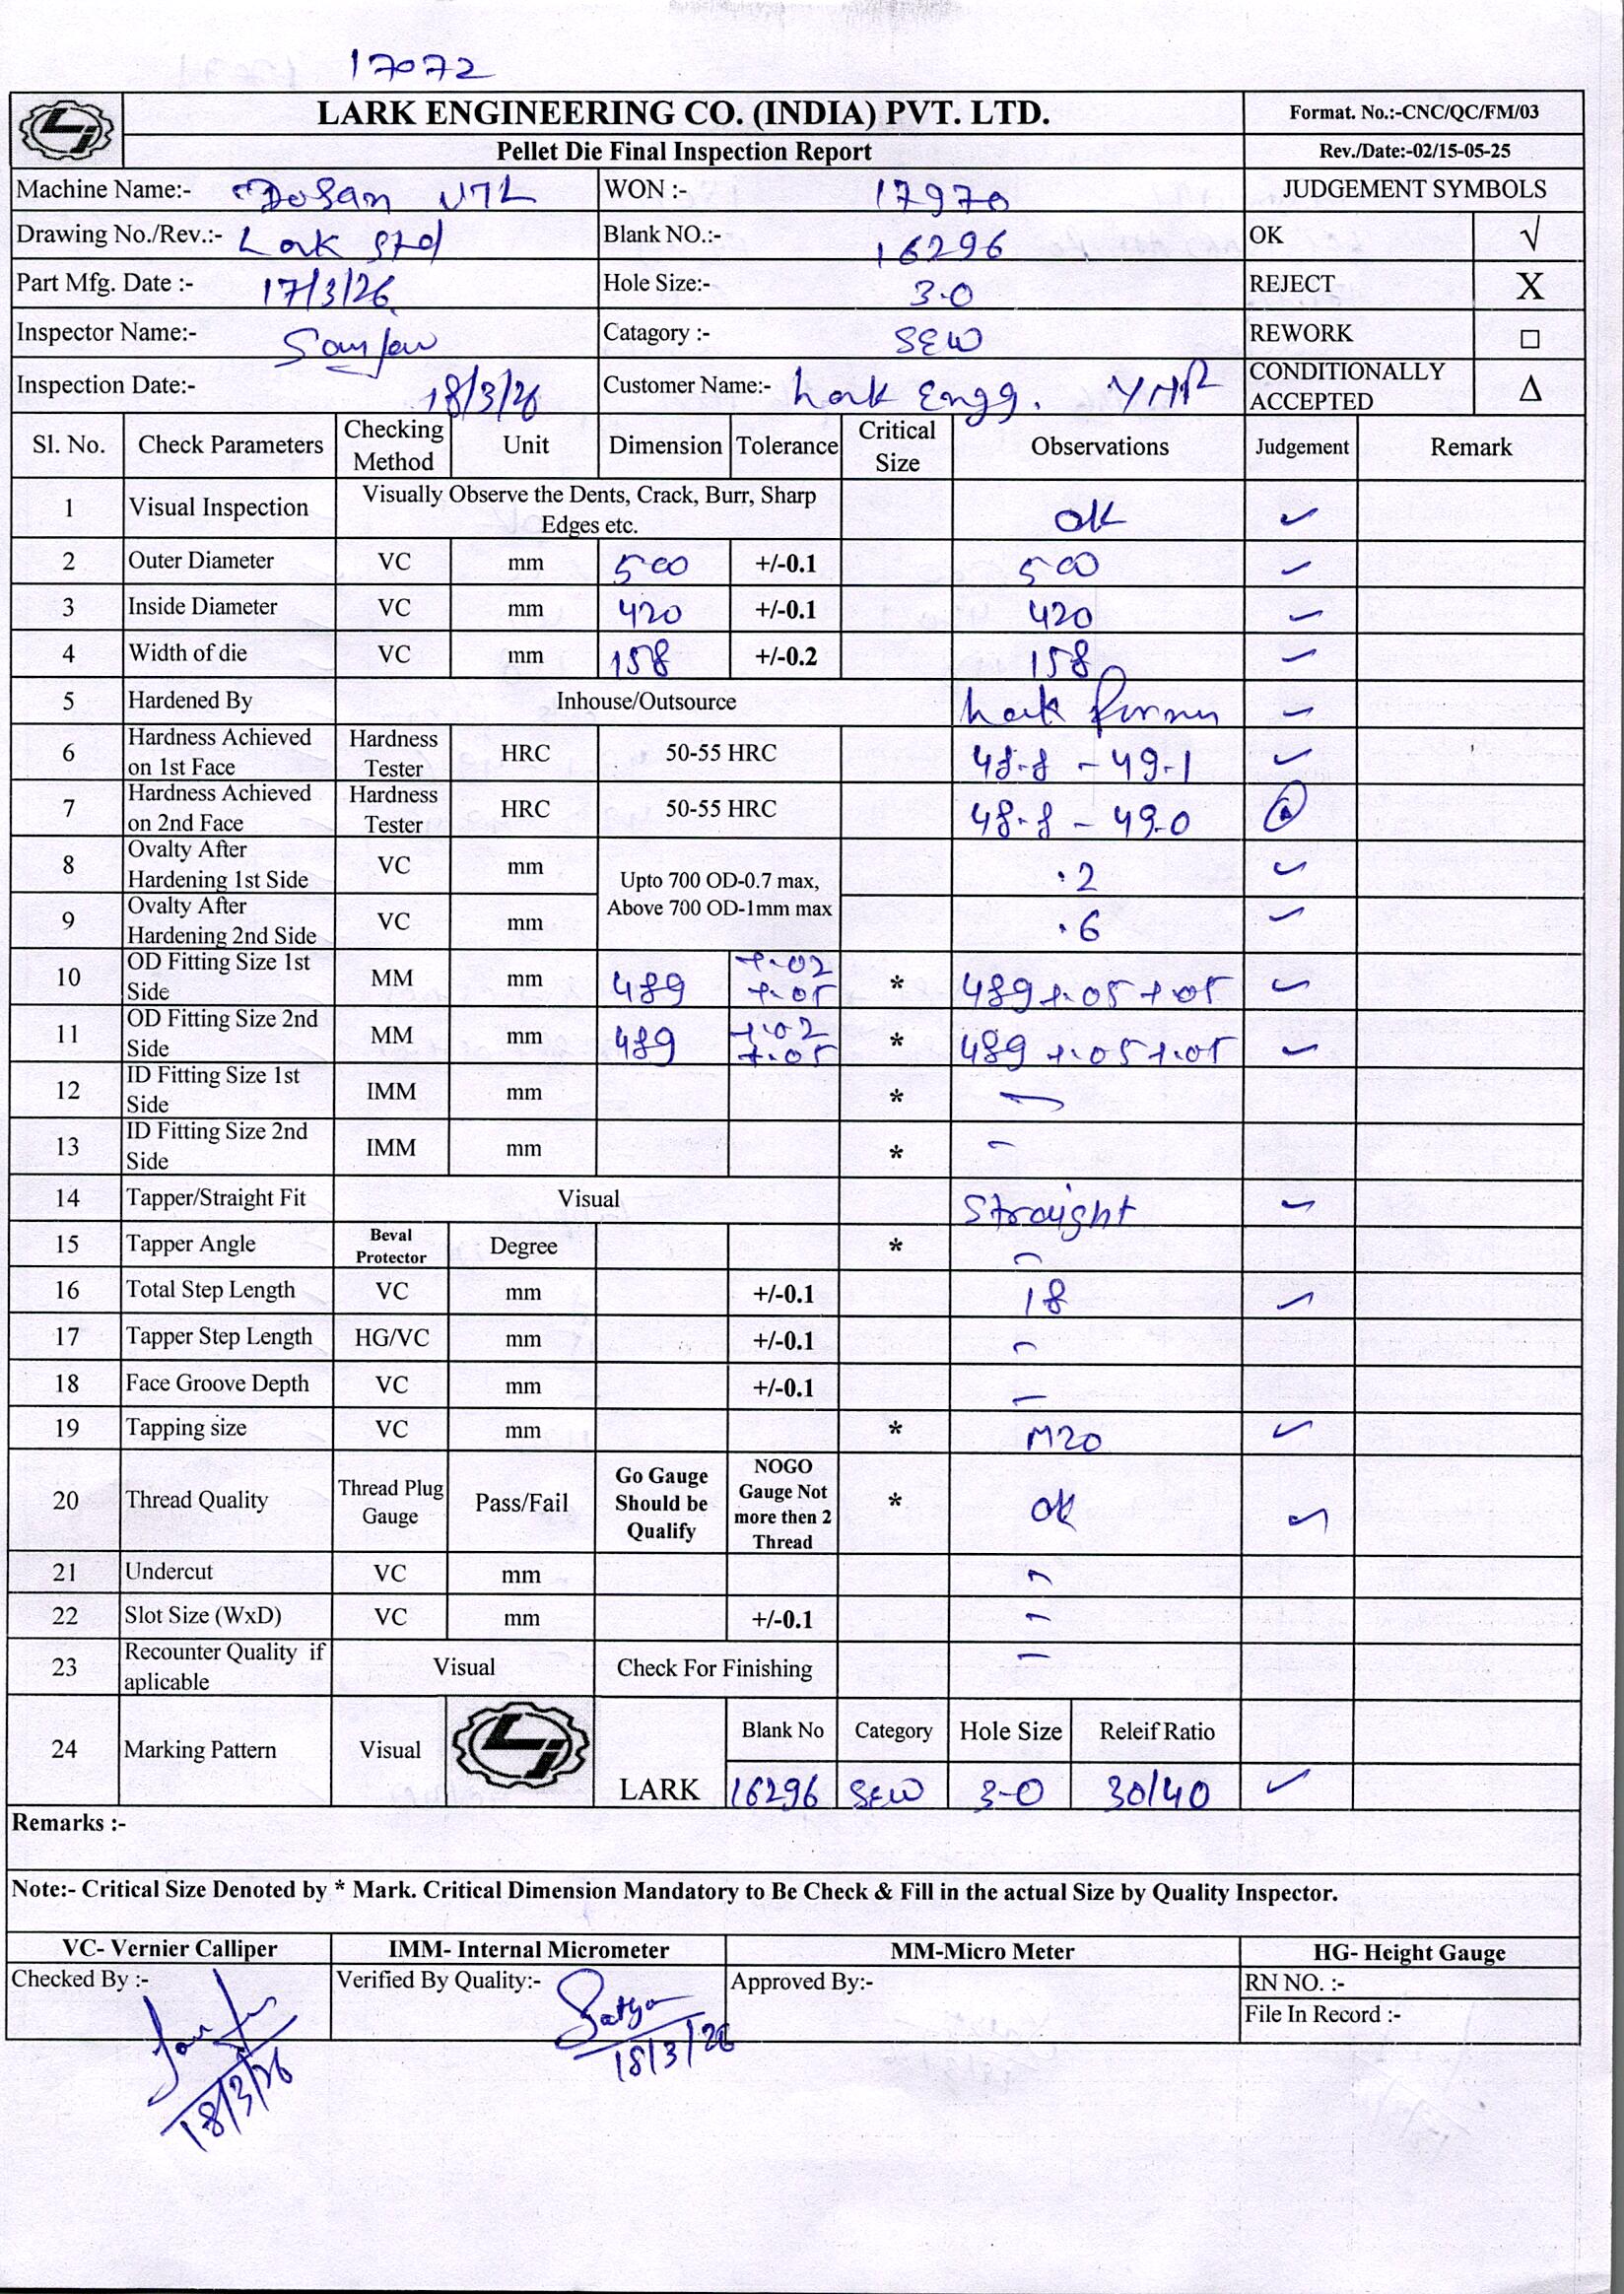 17072
LARK ENGINEERING CO. (INDIA) PVT. LTD.
Format. No.:-CNC/QC/FM/03
Pellet Die Final Inspection Report
Rev./Date:-02/15-05-25
Machine Name:- Dosan VTL WON :- 17970 JUDGEMENT SYMBOLS
Drawing No./Rev.:- Lark Std Blank NO.:- 16296 OK √
Part Mfg. Date :- 17/3/26 Hole Size:- 3.0 REJECT X
Inspector Name:- Catagory :- SEW REWORK □
Inspection Date:- 18/3/26 Customer Name:- Lark Engg. YNR CONDITIONALLY ACCEPTED Δ
Sl. No. Check Parameters Checking Method Unit Dimension Tolerance Critical Size Observations Judgement Remark
1 Visual Inspection Visually Observe the Dents, Crack, Burr, Sharp Edges etc. ok ✓
2 Outer Diameter VC mm 500 +/-0.1 500 ✓
3 Inside Diameter VC mm 420 +/-0.1 420 ✓
4 Width of die VC mm 158 +/-0.2 158 ✓
5 Hardened By Inhouse/Outsource Lark ✓
6 Hardness Achieved on 1st Face Hardness Tester HRC 50-55 HRC 48.8 - 49.1 ✓
7 Hardness Achieved on 2nd Face Hardness Tester HRC 50-55 HRC 48.8 - 49.0
8 Ovalty After Hardening 1st Side VC mm Upto 700 OD-0.7 max, Above 700 OD-1mm max .2 ✓
9 Ovalty After Hardening 2nd Side VC mm .6 ✓
10 OD Fitting Size 1st Side MM mm 489 +.02 +.05 * 489 +.05 +.05 ✓
11 OD Fitting Size 2nd Side MM mm 489 +.02 +.05 * 489 +.05 +.05 ✓
12 ID Fitting Size 1st Side IMM mm * -
13 ID Fitting Size 2nd Side IMM mm * -
14 Tapper/Straight Fit Visual Straight ✓
15 Tapper Angle Beval Protector Degree * -
16 Total Step Length VC mm +/-0.1 18 ✓
17 Tapper Step Length HG/VC mm +/-0.1 -
18 Face Groove Depth VC mm +/-0.1 -
19 Tapping size VC mm * M20 ✓
20 Thread Quality Thread Plug Gauge Pass/Fail Go Gauge Should be Qualify NOGO Gauge Not more then 2 Thread * ok ✓
21 Undercut VC mm -
22 Slot Size (WxD) VC mm +/-0.1 -
23 Recounter Quality if aplicable Visual Check For Finishing -
24 Marking Pattern Visual LARK Blank No Category Hole Size Releif Ratio
16296 SEW 3-0 30/40 ✓
Remarks :-
Note:- Critical Size Denoted by * Mark. Critical Dimension Mandatory to Be Check & Fill in the actual Size by Quality Inspector.
VC- Vernier Calliper IMM- Internal Micrometer MM-Micro Meter HG- Height Gauge
Checked By :- Verified By Quality:- Approved By:- RN NO. :-
File In Record :-
Satya
18/3/26
18/3/26